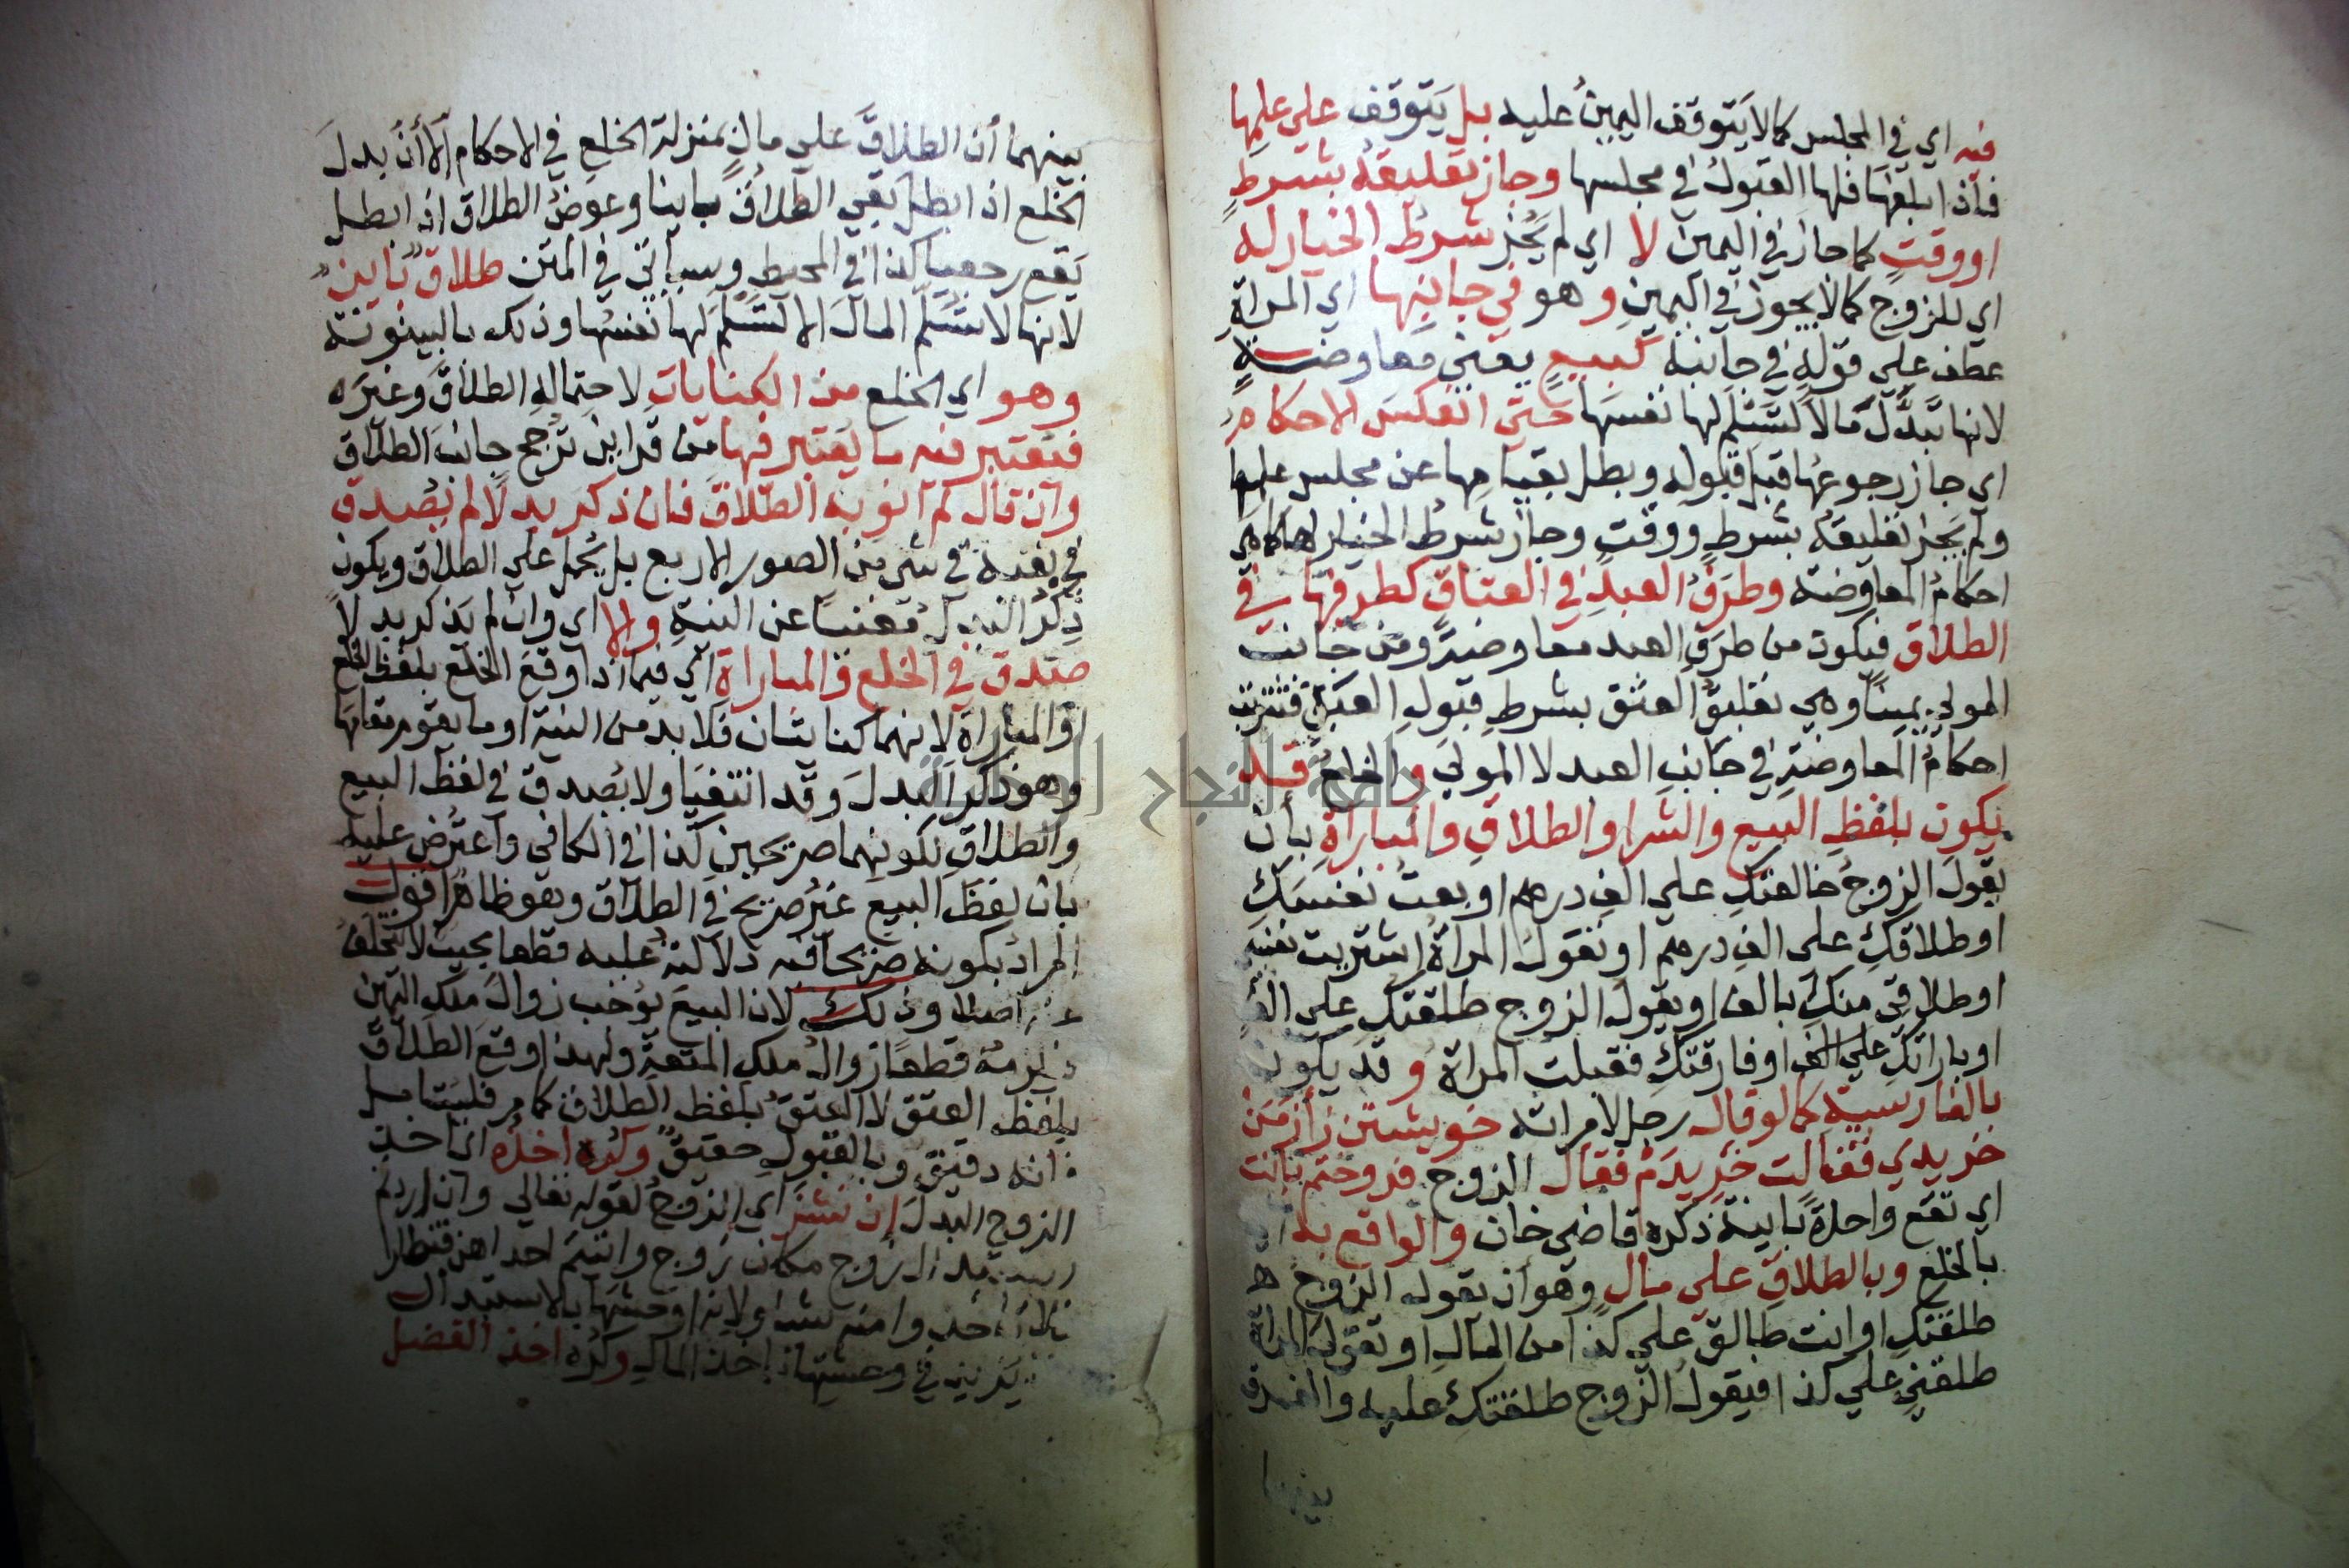 فيه اي في المجلس كما لا يَتوقف اليمينُ عليه بل يَتوقف علي علمِها
فاذا بلغها فلها القبولُ في مجلسها وجاز تعليقهُ بشرطٍ
او وقتٍ كما جازَ في اليمين لا اي لم يَجُز شرطُ الخيار له
اي للزوج كما لا يجوز في اليمينِ وهو في جانبِها اي المراةِ
عطف علي قولهِ في جانبه كبيعٍ يعني معاوضةً
لانها تبذُل مالاً لتَسْلَم لها نفسَها حتي انعكسَ الاحكام
اي جاز رجوعُها قبل قبوله وبطل بقيامِها عن مجلس علمها
ولم يَجز تعليقهُ بشرطٍ ووقتٍ وجاز شرطُ الخيار لها كما هي
احكامُ المعاوضة وطرَفُ العبدِ في العتاقِ كطرفها في
الطلاق فيكون من طرَفِ العبد معاوضةً ومن جانب
المولي يمينًا وهي تعليقُ العتق بشرطِ قبولِ العبدِ فتترتب
احكامُ المعاوضةِ في جانبِ العبد لا المولي والخلعُ قد
يكون بلفظِ البيع والشرا والطلاقِ والمباراةِ بأن
يقولَ الزوجُ خالعتكِ علي الفِ درهم او بعتُ نفسَكِ
او طلاقكِ علي الفِ درهم او تقولُ المراةُ اشتريت نفسي
او طلاقي منكَ بالف او يقولَ الزوج طلقتكِ علي الفٍ
او باراتكِ علي الف او فارقتكِ فقبلت المراة وقد يكون
بالفارسية كما لو قال رجل لامراته خويشتن رَا زمَن
خريدي فقالت خريدَمْ فقال الزوج فروختم بانت
اي تقع واحدةً باينةً ذكره قاضي خان والواقع به اي
بالخلع وبالطلاقِ علي مالٍ وهو ان يقولَ الزوجُ
طلقتكِ او انت طالق علي كذا من المالِ او تقولَ المراة
طلقني علي كذا فيقولُ الزوج طلقتكِ عليه والفرق
بينهما
بينهما أن الطلاقَ علي مالٍ بمنزلة الخلعِ في الاحكام الا أنَ بدلَ
الخلع اذا بطل بقي الطلاقُ باينا وعوضُ الطلاق اذا بطل
يَقع رجعيا كذا في المحيط وسياتي في المتن طلاقٌ باين
لانها لا تُسَلّم المالَ الا لتَسْلَم لها نفسُها وذلك بالبينونة
وهو اي الخلع من الكناياتِ لاحتِمالهِ الطلاقَ وغيرَه
فيُعتبر فيه ما يُعتبر فيها من قراين تُرجح جانبَ الطلاق
وان قال لم انوِ به الطلاقَ فان ذكر بدلاً لم يُصدق
في شي من الصور الاربع بل يُحمل علي الطلاق ويكون
ذِكرُ البدل مُغنيًا عن النيةِ والا اي وان لم يَذكر بدلاً
صدق في الخلع والمباراة اي فيما اذا وقعَ الخلع بلفظ الخلع
او المباراة لانهما كنايتان فلا بد من النية او ما يقوم مقامها
وهو ذكر البدلَ وقد انتفيَا ولا يُصدق في لفظ البيع
والطلاقِ لكونِهما صريحين كذا في الكافي واعترُض عليه
بان لفظَ البيع غيرُ صريح في الطلاق وهو ظاهر اقول
المراد بكونه صريحًا فيه دلالتهُ عليه قطعا بحيث لا تتخلف
عنه اصلا وذلك لان البيعَ يوُجب زوالَ ملكِ اليمين
ويلزمهُ قطعًا زوالُ ملكِ المتعةِ ولهذا وقعَ الطلاقُ
بلفظ العتق لا العتق بلفظ الطلاق كما مر فليتامل
فانه دقيق وبالقبولِ حقيق وكُره اخذُه اي اخذ
الزوج البدلَ إن نشزَ اي الزوجُ لقوله تعالي وان اردتم
استبدال زوج مكان زوج واتيتم احداهن قنطارا
فلا تاخذوا منه شيئا ولانه اوحشَها بالاستبدال
فلا يَزيد في وحشتِها باخذ المالِ وكُره اخذ الفضل